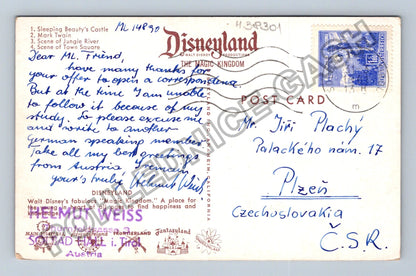 ML 14890
H3R301
1. Sleeping Beauty's Castle
2. Mark Twain
3. Scene of Jungle River
4. Scene of Town Square
Disneyland
THE MAGIC KINGDOM
POST CARD
Dear ML. Friend,
have many thanks for
your offer to open a correspondence.
But at the time I am unable
to follow it because of my
study. So please excuse me
and write to another
German speaking member.
Take all my best greetings
from Austria
your's truly Helmut Weiss
DISNEYLAND
Walt Disney's fabulous "Magic Kingdom." A place for
people to find happiness and
HELMUT WEISS
SOLBAD HALL i. Tirol
Austria
FRONTIERLAND
Fantasyland
Mr. Jiří Plachý
Palackého nám. 17
Plzeň
Czechoslovakia
Č.S.R.
POHLEDNICE.GASH